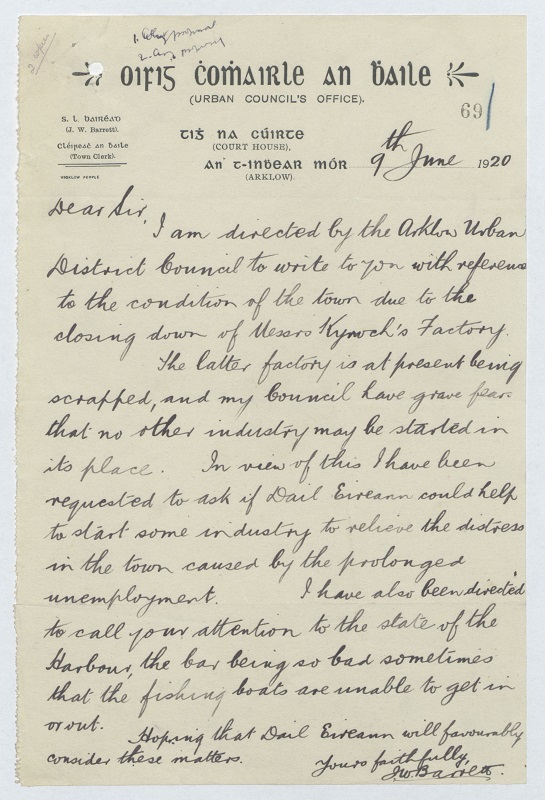 oifig ċoṁairle an ḃaile
(URBAN COUNCIL'S OFFICE).
69
(J. W. Barrett).
Cléipeaċ an ḃaile
(Town Clerk).
WICKLOW PEOPLE
tiġ na cúirte
(COURT HOUSE),
an t-inḃear mór
(ARKLOW).
9th June 1920
Dear Sir,
I am directed by the Arklow Urban
District Council to write to you with reference
to the condition of the town due to the
closing down of Messrs Kynoch's Factory.
The latter factory is at present being
scrapped, and my Council have grave fears
that no other industry may be started in
its place. In view of this I have been
requested to ask if Dail Eireann could help
to start some industry to relieve the distress
in the town caused by the prolonged
unemployment. I have also been directed
to call your attention to the state of the
Harbour, the bar being so bad sometimes
that the fishing boats are unable to get in
or out.
Hoping that Dail Eireann will favourably
consider these matters.
Yours faithfully,
JW Barrett.